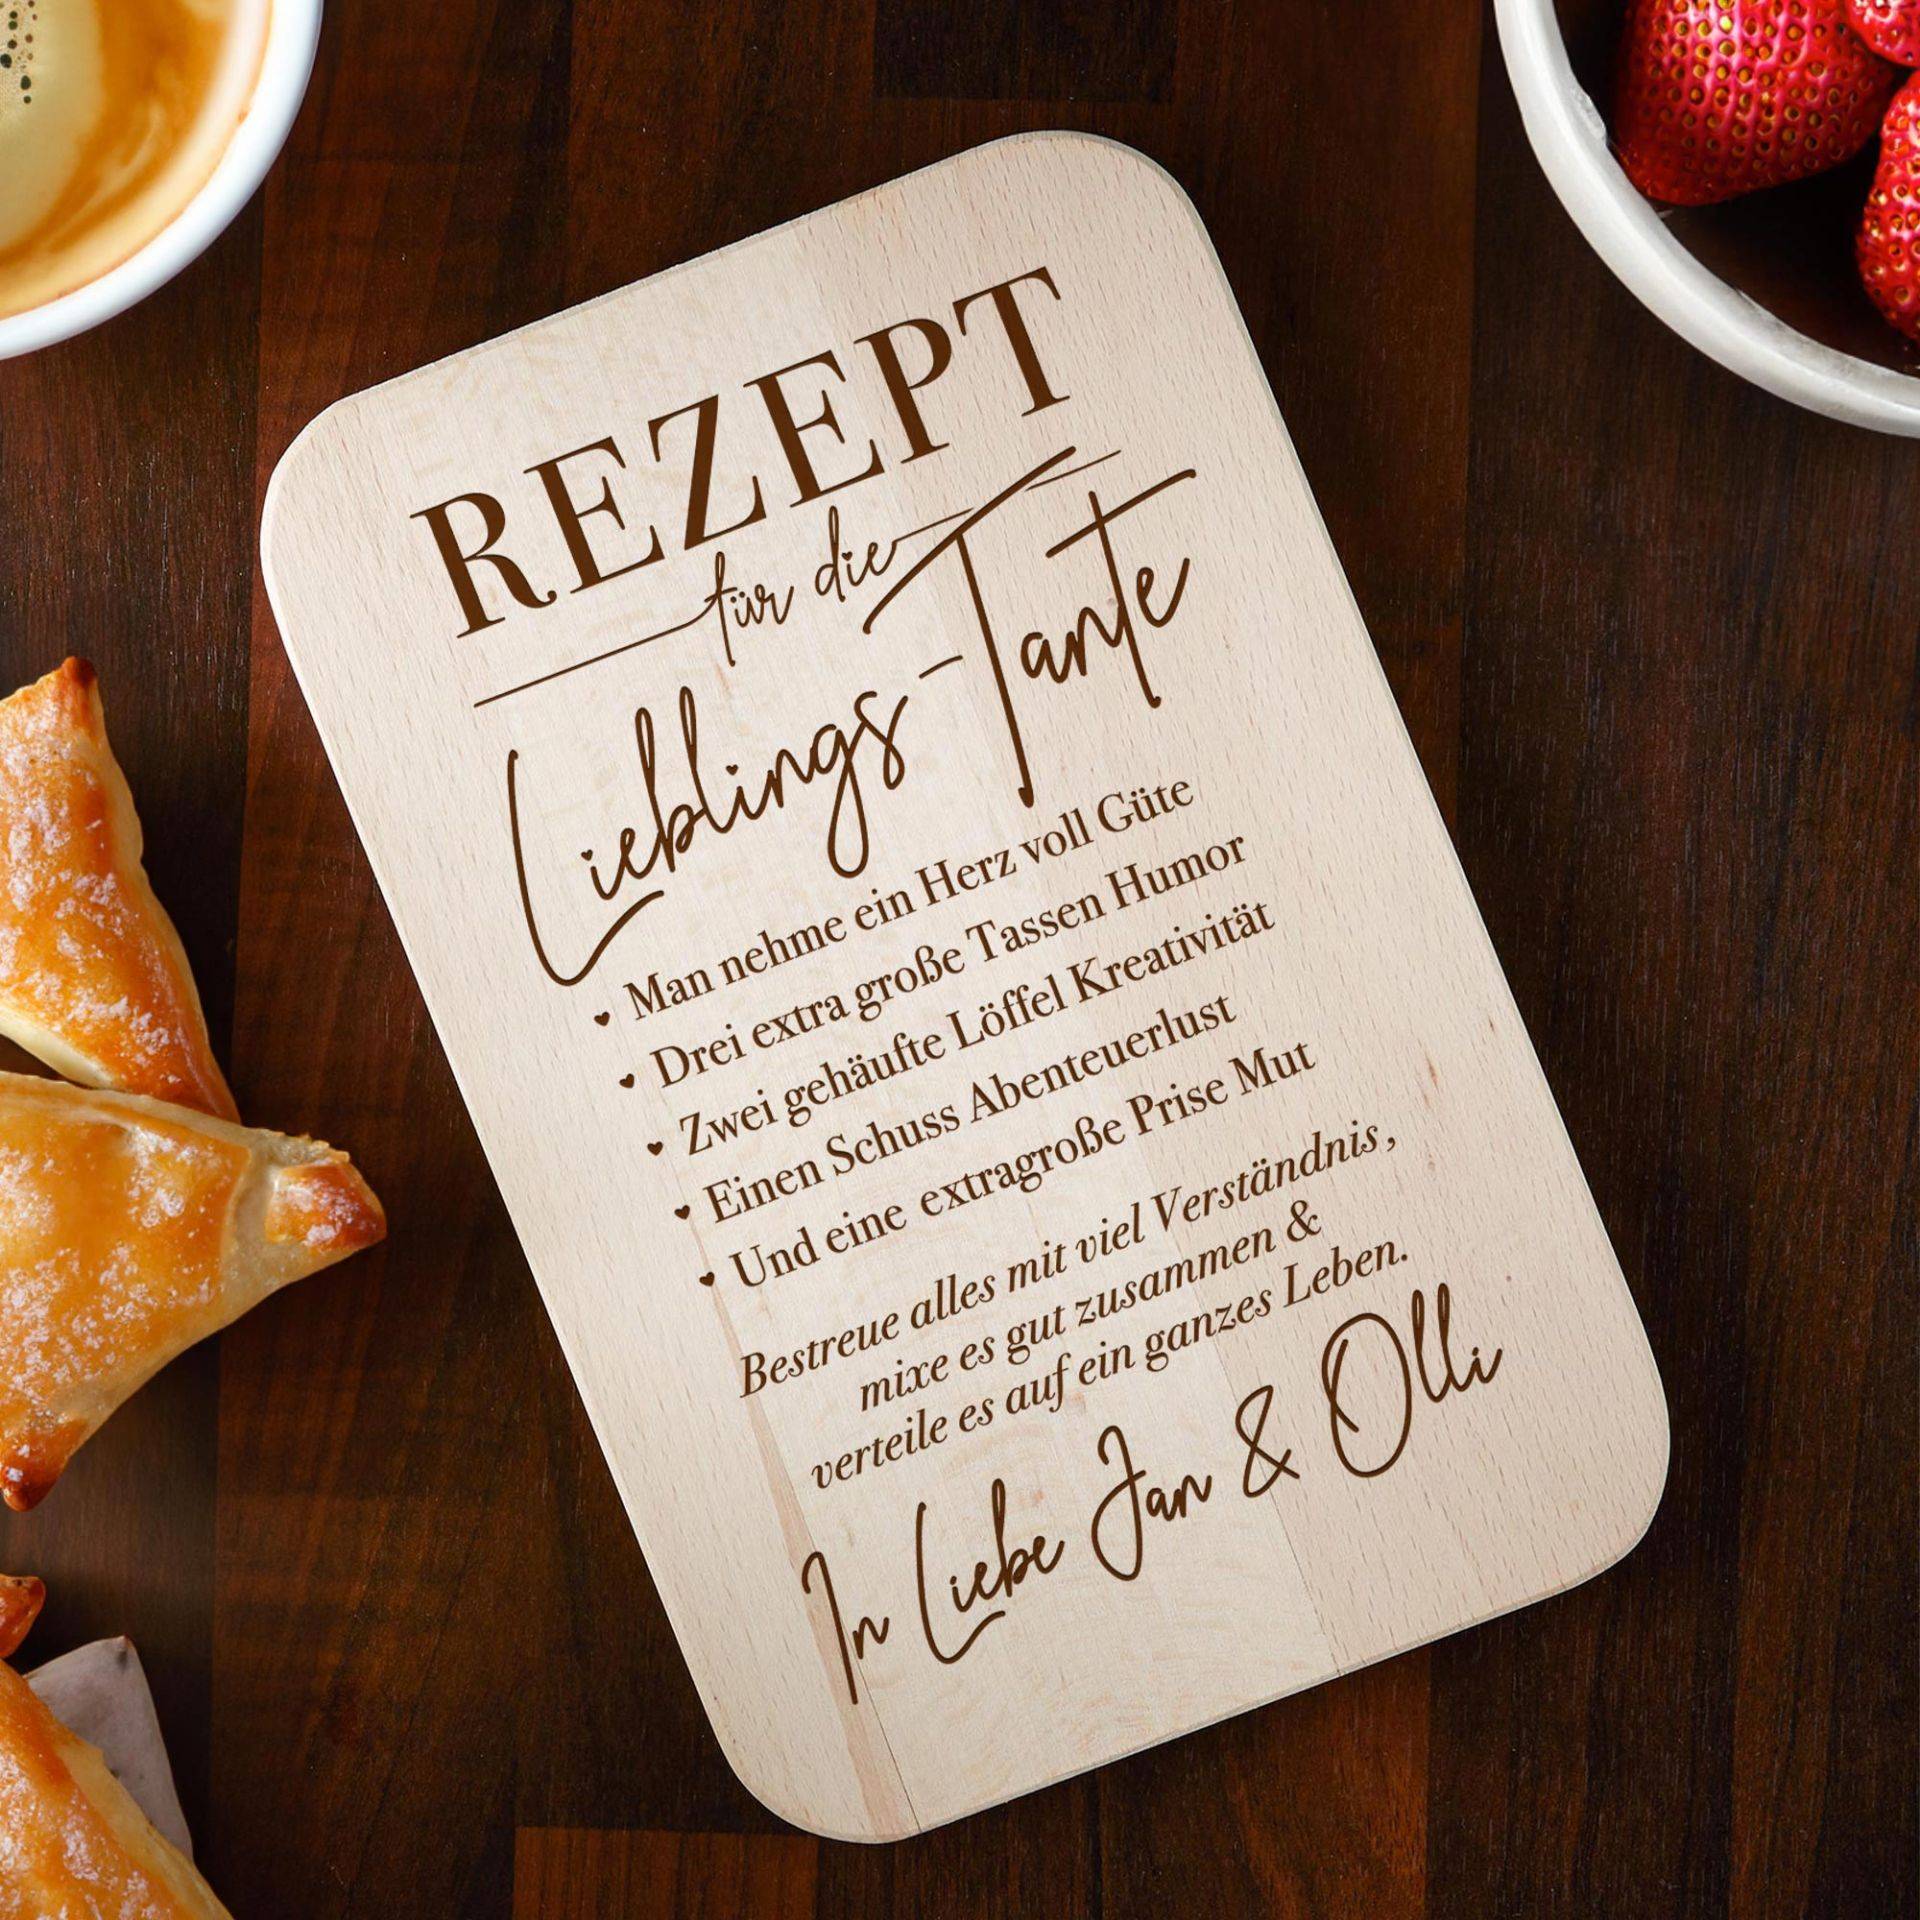 REZEPT
für die
Lieblings-Tante
Man nehme ein Herz voll Güte
Drei extra große Tassen Humor
Zwei gehäufte Löffel Kreativität
Einen Schuss Abenteuerlust
Und eine extragroße Prise Mut
Bestreue alles mit viel Verständnis,
mixe es gut zusammen &
verteile es auf ein ganzes Leben.
In Liebe Jan & Olli